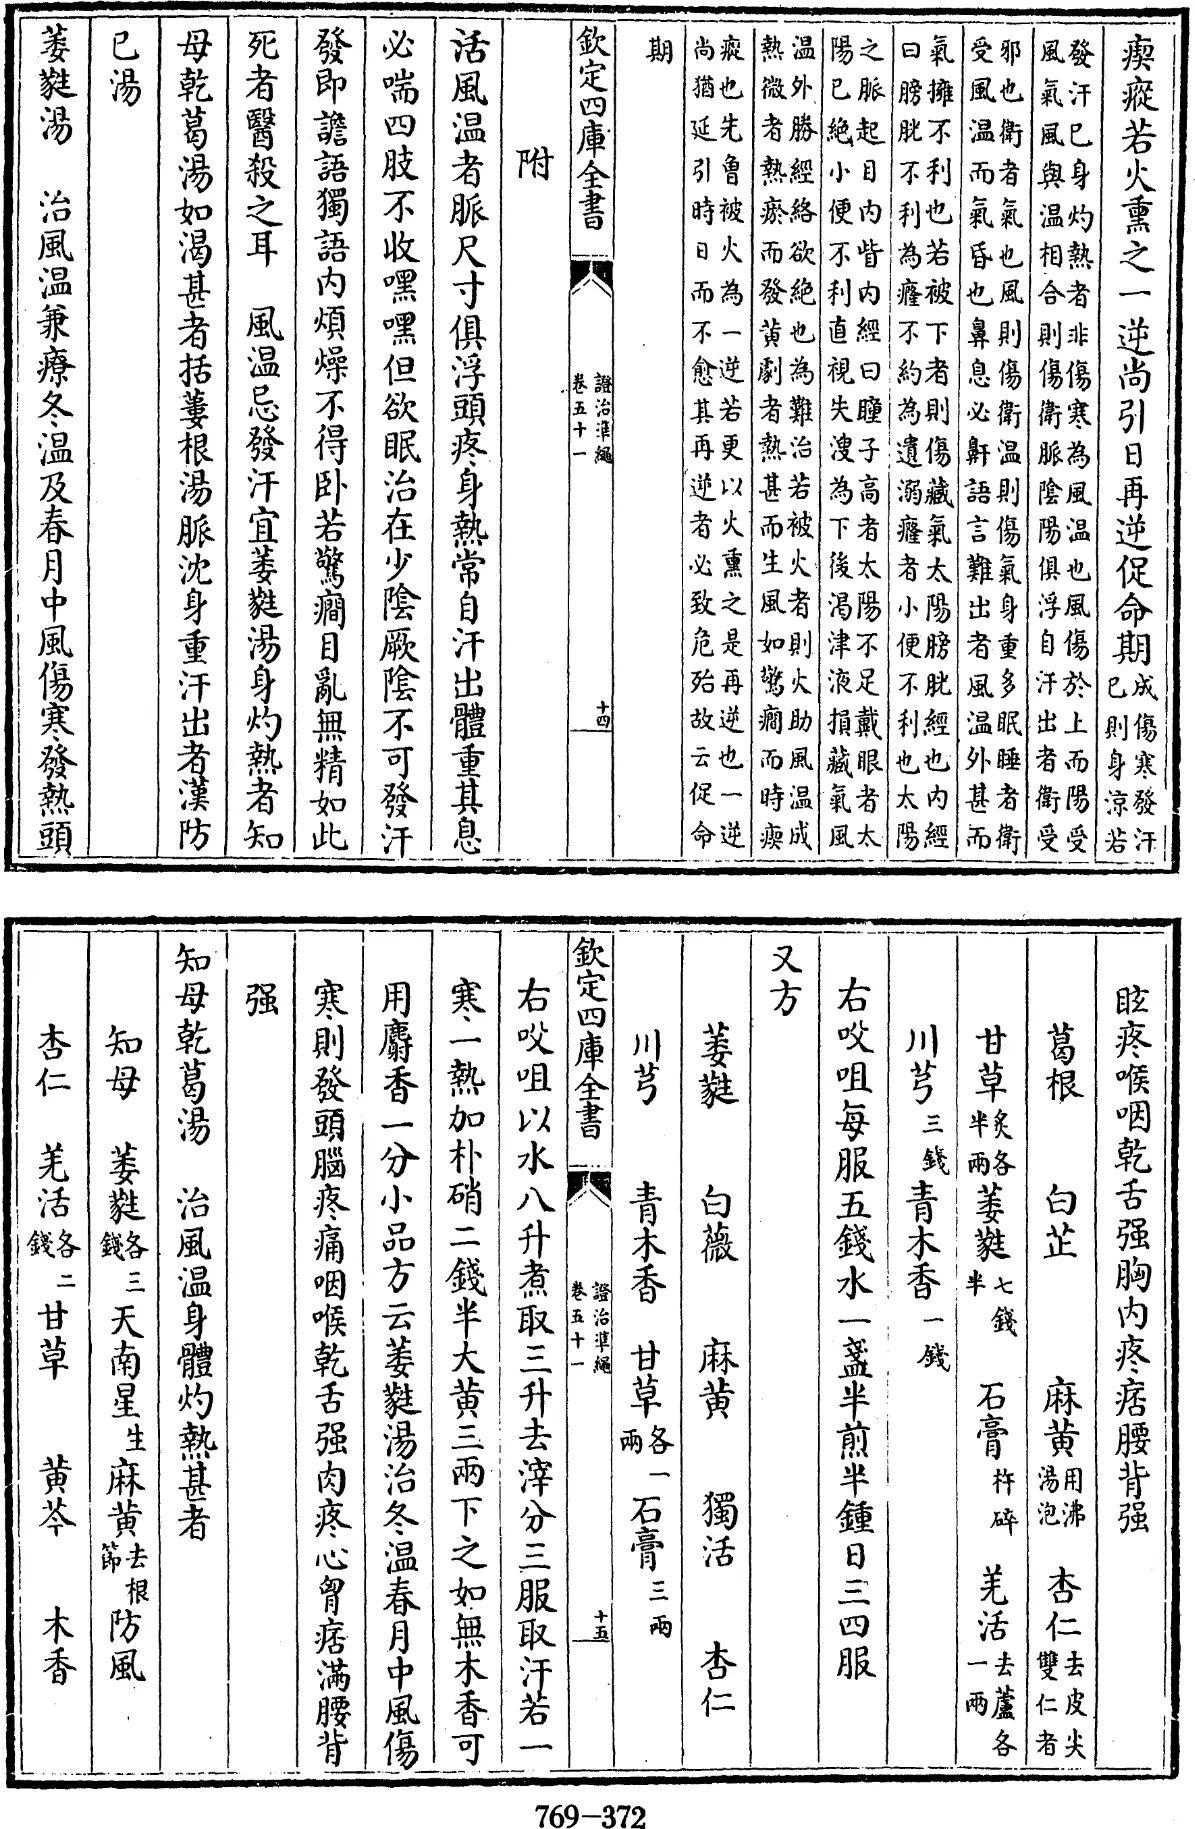 瘈瘲若火熏之一逆尚引日再逆促命期成傷寒發汗已則身涼若
發汗已身灼熱者非傷寒為風温也風傷於上而陽受
風氣風與温相合則傷衛脈陰陽俱浮自汗出者衛受
邪也衛者氣也風則傷衛温則傷氣身重多眠睡者衛
受風温而氣昏也鼻息必鼾語言難出者風温外甚而
氣擁不利也若被下者則傷藏氣太陽膀胱經也内經
曰膀胱不利為癃不約為遺溺癃者小便不利也太陽
之脈起目内眥内經曰瞳子高者太陽不足戴眼者太
陽已絶小便不利直視失溲為下後渴津液損藏氣風
温外勝經絡欲絶也為難治若被火者則火助風温成
熱微者熱瘀而發黄劇者熱甚而生風如驚癇而時瘈
瘲也先魯被火為一逆若更以火熏之是再逆也一逆
尚猶延引時日而不愈其再逆者必致危殆故云促命
期
欽定四庫全書
證治準繩
卷五十一
十四
附
活風温者脈尺寸俱浮頭疼身熱常自汗出體重其息
必喘四肢不收嘿嘿但欲眠治在少陰厥陰不可發汗
發即譫語獨語内煩燥不得卧若驚癇目亂無精如此
死者醫殺之耳　風温忌發汗宜萎蕤湯身灼熱者知
母乾葛湯如渴甚者括蔞根湯脈沈身重汗出者漢防
已湯
萎蕤湯　治風温兼療冬温及春月中風傷寒發熱頭
眩疼喉咽乾舌强胸内疼痞腰背强
葛根　白芷　麻黄用沸湯泡　杏仁去皮尖雙仁者
甘草炙各半兩　萎蕤七錢半　石膏杵碎　羌活去蘆各一兩
川芎三錢　青木香一錢
右㕮咀每服五錢水一盞半煎半鍾日三四服
又方
萎蕤　白薇　麻黄　獨活　杏仁
川芎　青木香　甘草各一兩　石膏三兩
欽定四庫全書
證治準繩
卷五十一
十五
右㕮咀以水八升煮取三升去滓分三服取汗若一
寒一熱加朴硝二錢半大黄三兩下之如無木香可
用麝香一分小品方云萎蕤湯治冬温春月中風傷
寒則發頭腦疼痛咽喉乾舌强肉疼心胷痞滿腰背
强
知母乾葛湯　治風温身體灼熱甚者
知母　萎蕤各三錢　天南星生　麻黄去根節　防風
杏仁　羌活各二錢　甘草　黄芩　木香
769—372